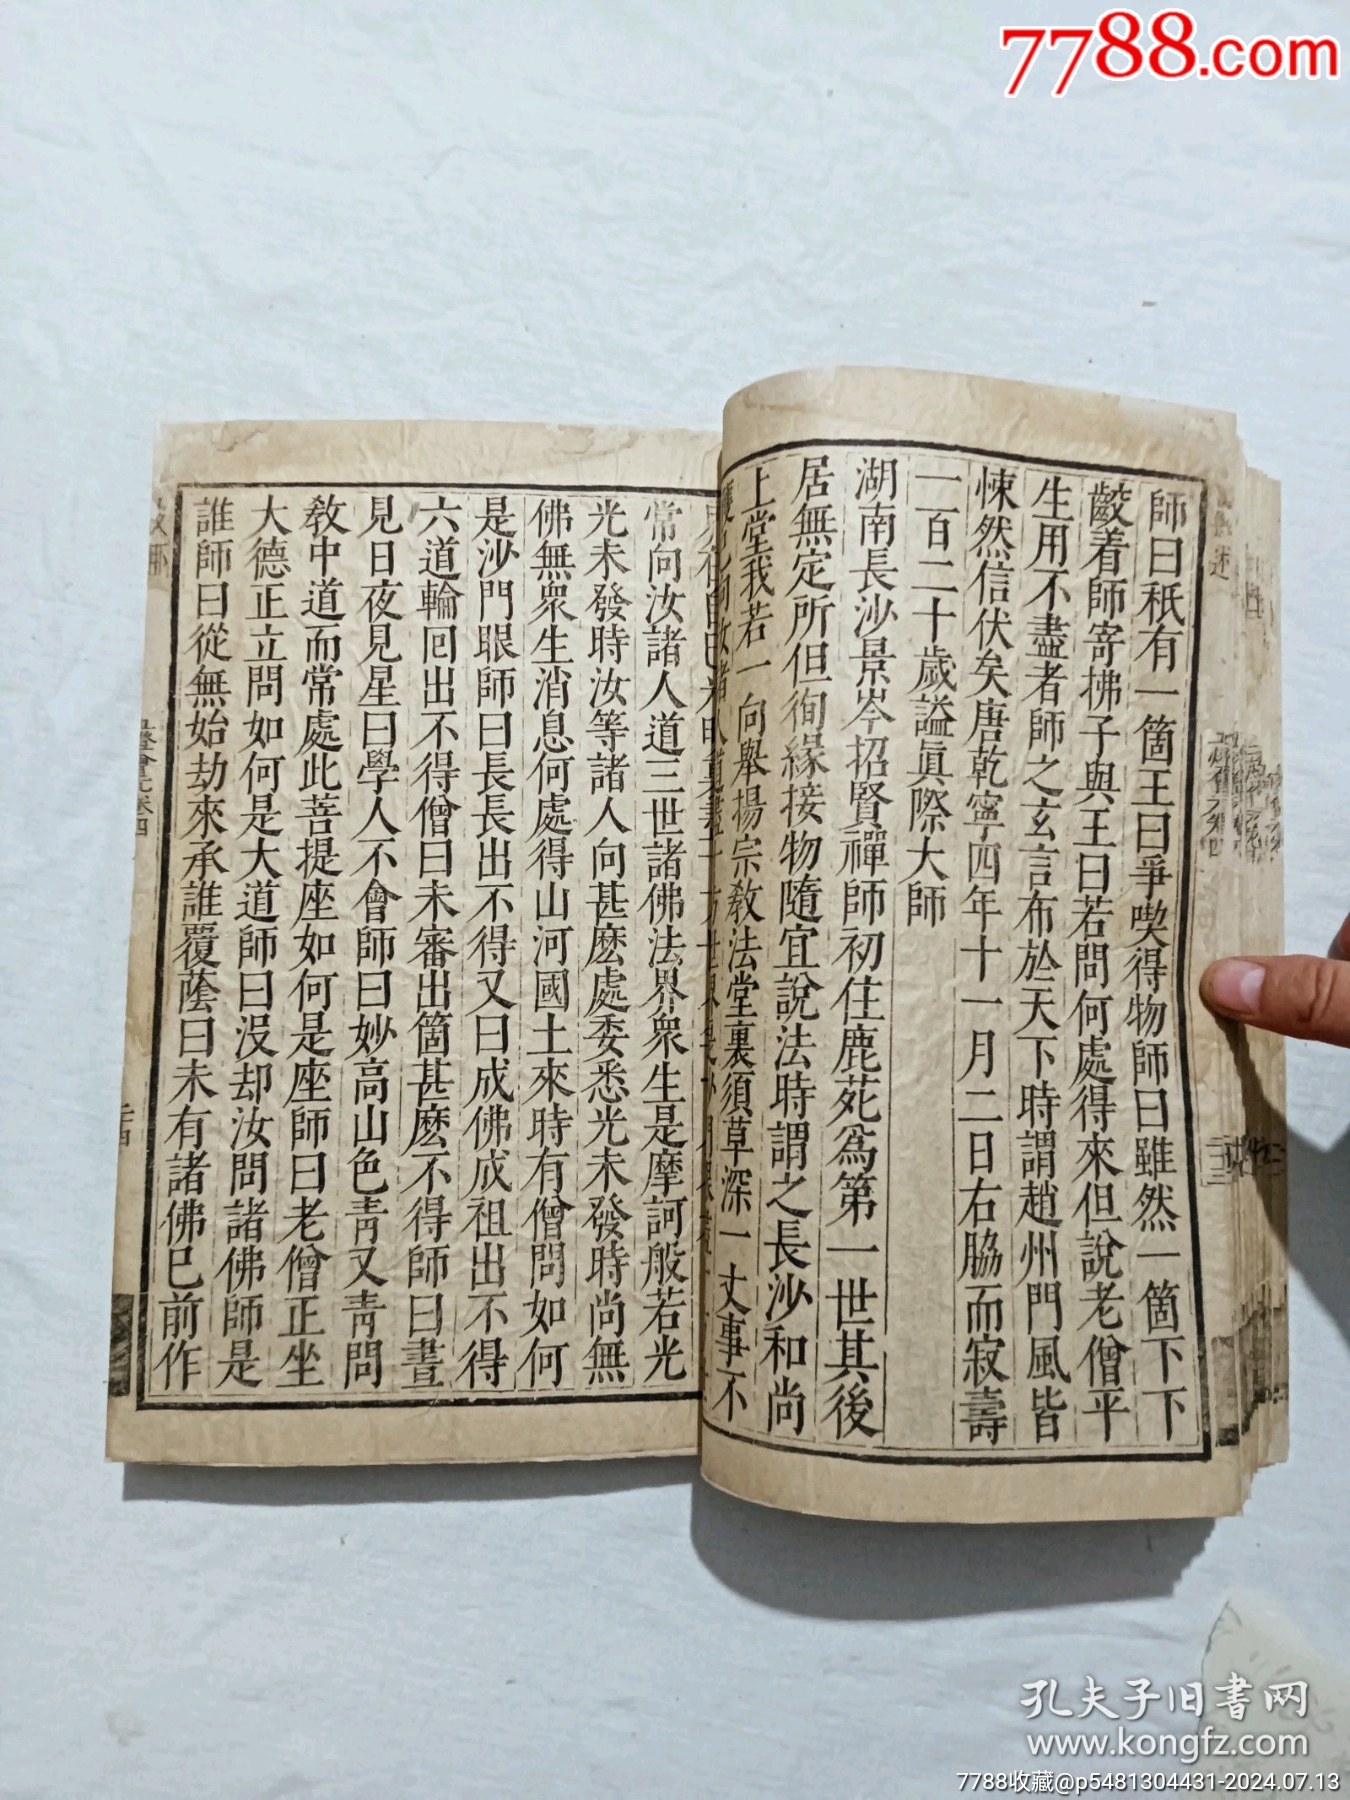 7788.com
師曰秖有一箇王曰爭喫得物師曰雖然一箇下下
齩着師寄拂子與王曰若問何處得來但說老僧平
生用不盡者師之玄言布於天下時謂趙州門風皆
悚然信伏矣唐乾寧四年十一月二日右脇而寂壽
一百二十歲謚眞際大師
湖南長沙景岑招賢禪師初住鹿苑爲第一世其後
居無定所但徇緣接物隨宜說法時謂之長沙和尚
上堂我若一向舉揚宗教法堂裏須草深一丈事不
常向汝諸人道三世諸佛法界衆生是摩訶般若光
光未發時汝等諸人向甚麽處委悉光未發時尚無
佛無衆生消息何處得山河國土來時有僧問如何
是沙門眼師曰長長出不得又曰成佛成祖出不得
六道輪回出不得僧曰未審出箇甚麽不得師曰晝
見日夜見星曰學人不會師曰妙高山色青又青問
教中道而常處此菩提座如何是座師曰老僧正坐
大德正立問如何是大道師曰沒却汝問諸佛師是
誰師曰從無始劫來承誰覆蔭曰未有諸佛巳前作
孔夫子旧書网
www.kongfz.com
7788收藏@p5481304431-2024.07.13